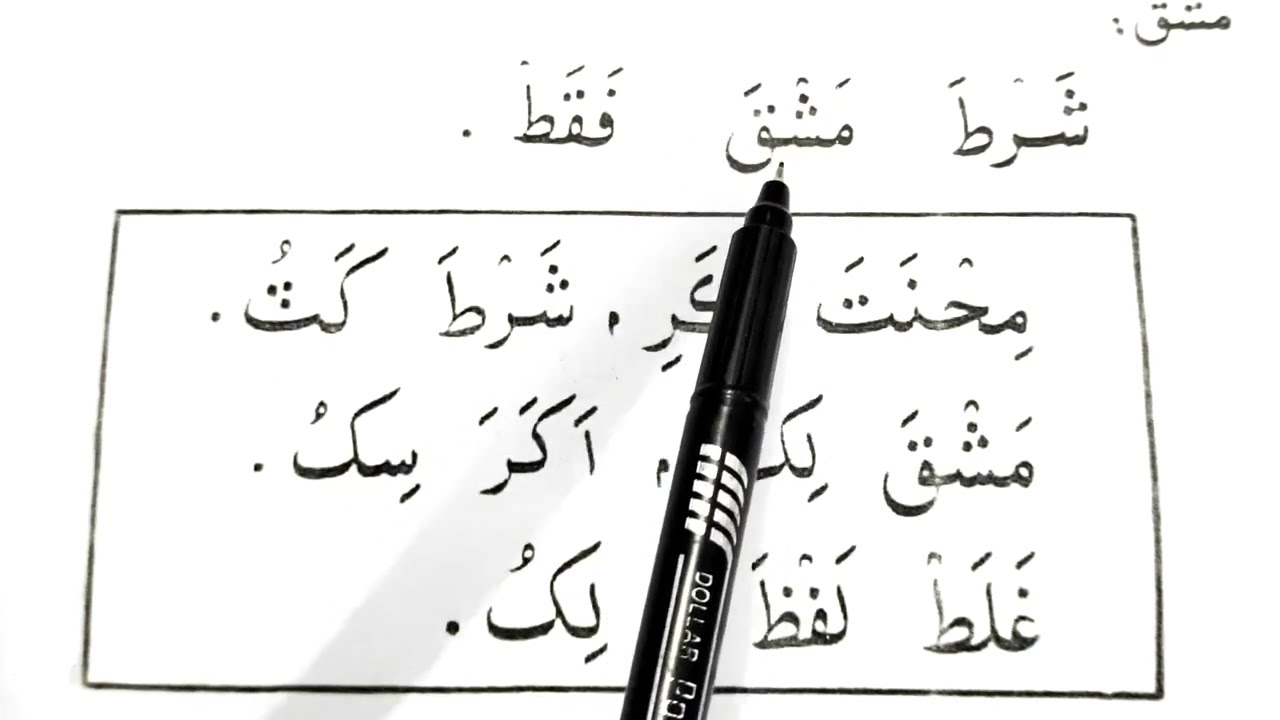 مشق:
شَرْطَ مَشْقَ فَقَطْ .
مِحْنَتَ ڪَرِ، شَرْطَ کَٽُ.
مَشْقَ لِک، اَکَرَ سِکُ.
غَلَطْ لَفْظَ لِکُ.
DOLLAR